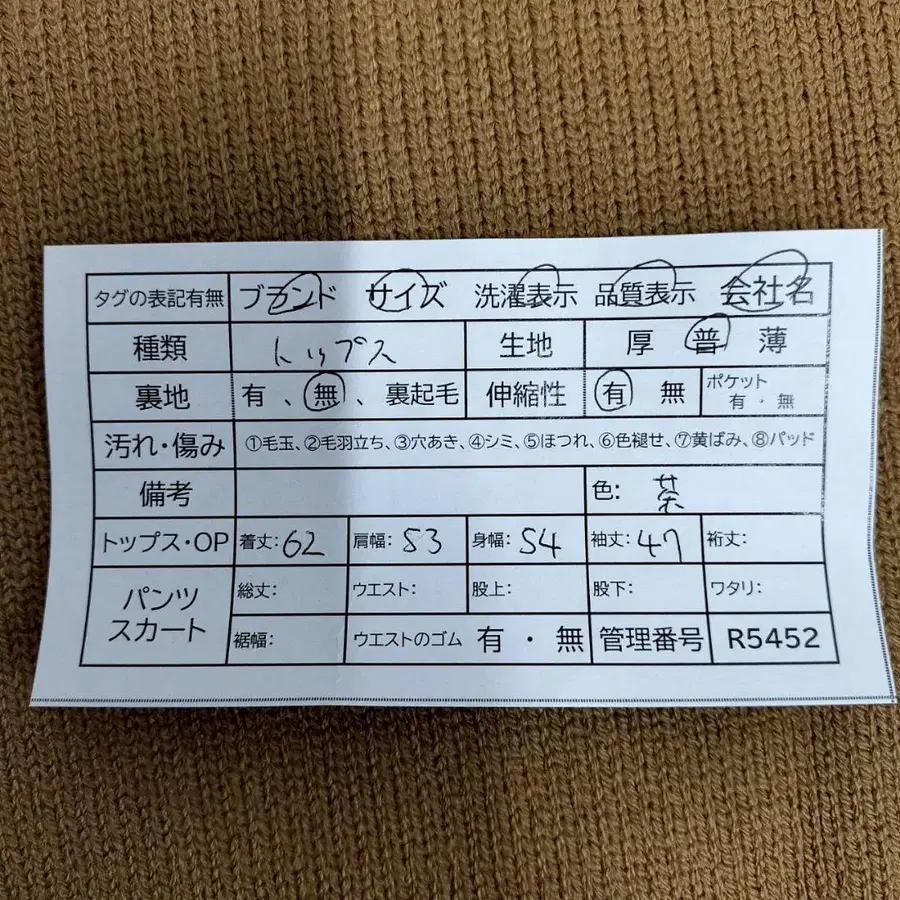 タグの表記有無 ブランド サイズ 洗濯表示 品質表示 会社名
種類 トップス 生地 厚 普 薄
裏地 有 、無 、裏起毛 伸縮性 有 無 ポケット 有 ・ 無
汚れ・傷み ①毛玉、②毛羽立ち、③穴あき、④シミ、⑤ほつれ、⑥色褪せ、⑦黄ばみ、⑧パッド
備考 色: 茶
トップス・OP 着丈: 62 肩幅: 53 身幅: 54 袖丈: 47 裄丈:
パンツ スカート 総丈: ウエスト: 股上: 股下: ワタリ:
裾幅: ウエストのゴム 有 ・ 無 管理番号 R5452